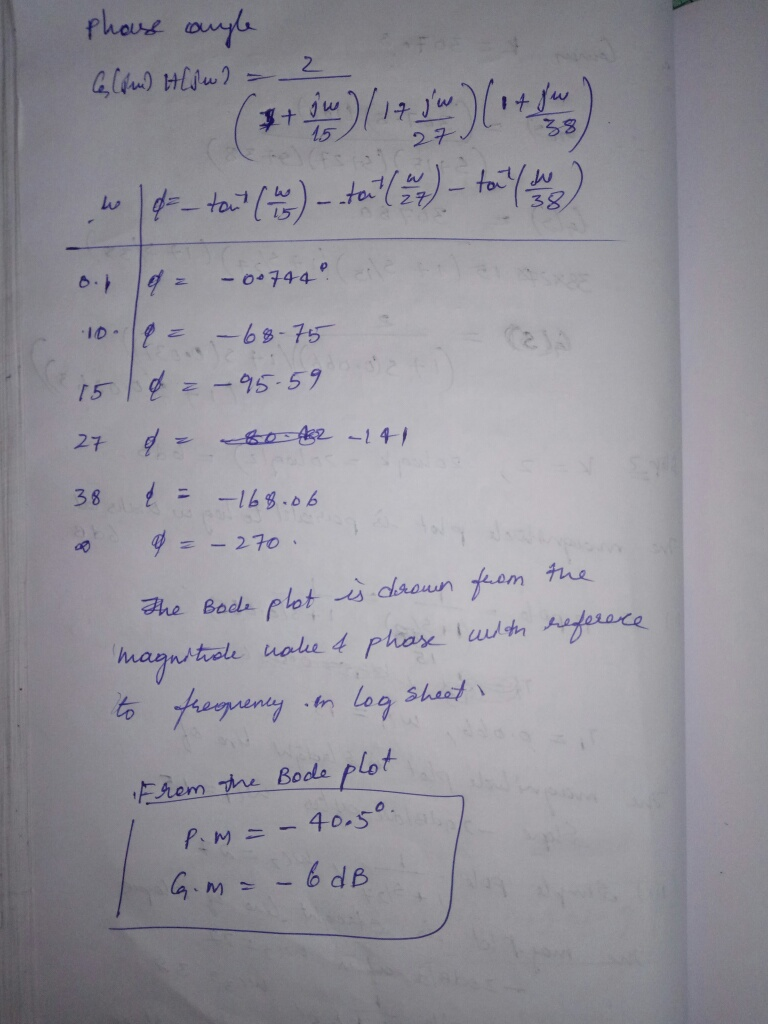 phase angle
G(jw) H(jw) = 2
(1 + jw/15) (1+ jw/27) (1+ jw/38)
w φ= - tan⁻¹ (w/15) - tan⁻¹ (w/27) - tan⁻¹ (w/38)
0.1 φ = -0.744°
10. φ = -68.75
15 φ = -95.59
27 φ = -141
38 φ = -168.06
∞ φ = -270.
The Bode plot is drawn from the
magnitude value & phase with reference
to frequency in log sheet.
From the Bode plot
P.M = - 40.5°
G.M = - 6 dB